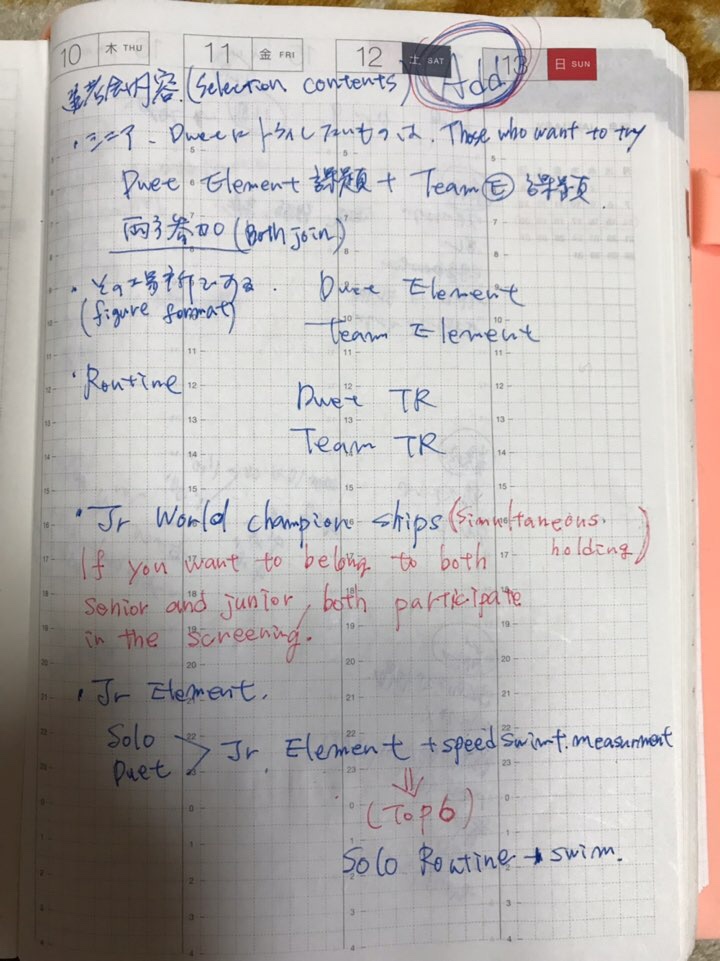 10 木 THU 11 金 FRI 12 土 SAT 13 日 SUN
選考会内容 (Selection contents) Add
・シニア、Duetにトライしたいもの は、Those who want to try
Duet Element 課題 + Team Ⓔ 課題
両方参加 (Both join)
(figure format) Duet Element
Team Element
・Routine Duet TR
Team TR
・Jr World champion ships (Simultaneous holding)
If you want to belong to both
senior and junior, both participate
in the screening.
・Jr Element.
Solo
Duet > Jr. Element + speed swimt. measurment
⇓
(Top 6)
Solo Routine → swim.